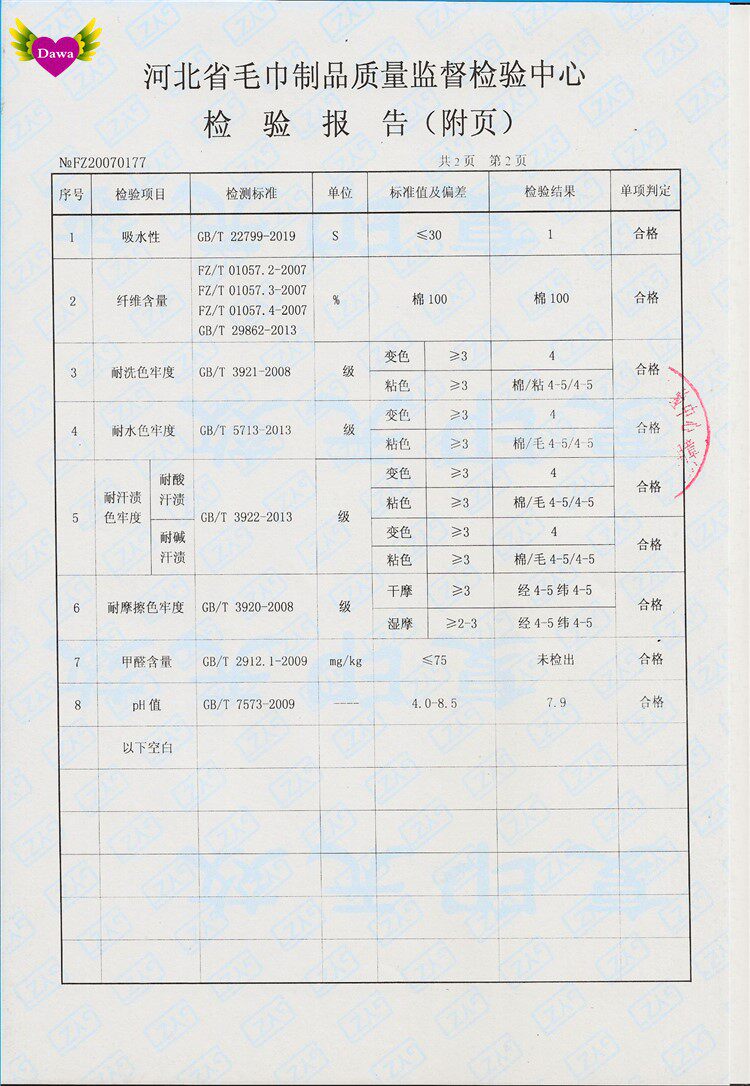 Dawa
河北省毛巾制品质量监督检验中心
检 验 报 告（附页）
№FZ20070177 共2页 第2页
序号 检验项目 检测标准 单位 标准值及偏差 检验结果 单项判定
1 吸水性 GB/T 22799-2019 S ≤30 1 合格
2 纤维含量 FZ/T 01057.2-2007 FZ/T 01057.3-2007 FZ/T 01057.4-2007 GB/T 29862-2013 % 棉100 棉100 合格
3 耐洗色牢度 GB/T 3921-2008 级 变色 ≥3 4 合格
粘色 ≥3 棉/粘 4-5/4-5
4 耐水色牢度 GB/T 5713-2013 级 变色 ≥3 4 合格
粘色 ≥3 棉/毛 4-5/4-5
5 耐汗渍色牢度 耐酸汗渍 GB/T 3922-2013 级 变色 ≥3 4 合格
粘色 ≥3 棉/毛 4-5/4-5
耐碱汗渍 变色 ≥3 4 合格
粘色 ≥3 棉/毛 4-5/4-5
6 耐摩擦色牢度 GB/T 3920-2008 级 干摩 ≥3 经 4-5 纬 4-5 合格
湿摩 ≥2-3 经 4-5 纬 4-5
7 甲醛含量 GB/T 2912.1-2009 mg/kg ≤75 未检出 合格
8 pH值 GB/T 7573-2009 ---- 4.0-8.5 7.9 合格
以下空白